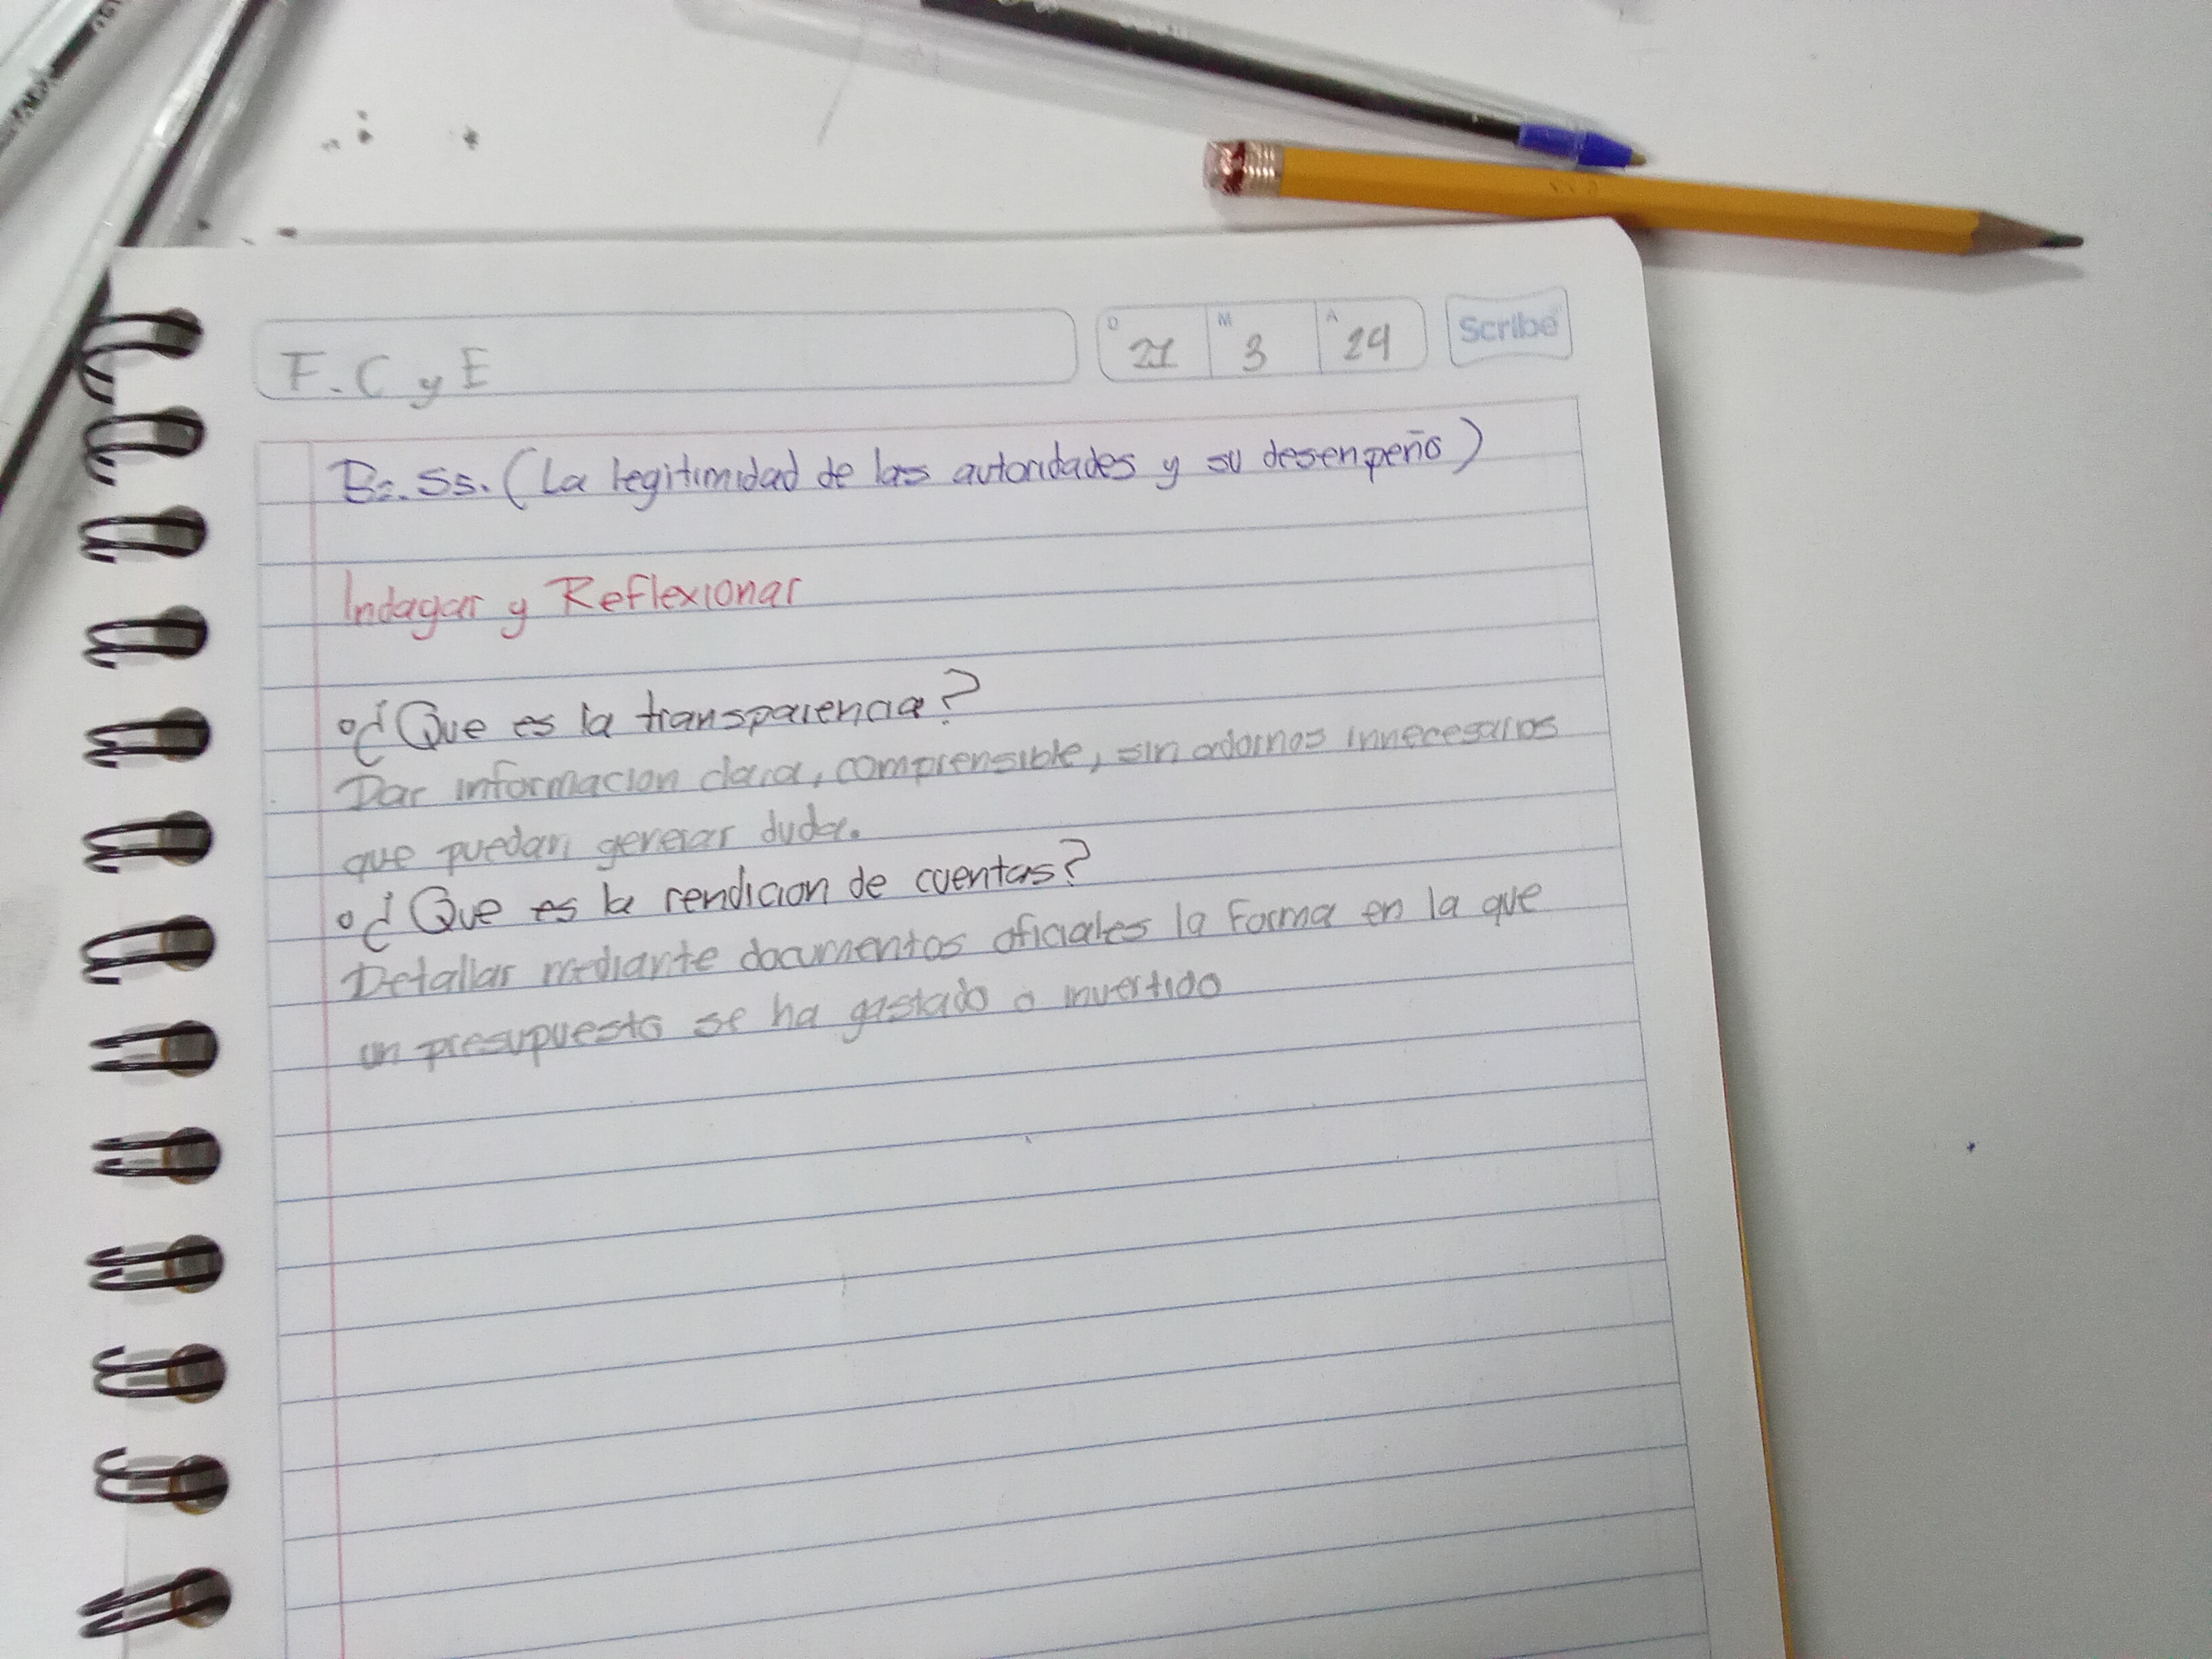 F. C y E
D 21 M 3 A 24
Scribe
(La legitimidad de las autoridades y su desempeño)
Indagar y Reflexionar
¿Que es la transparencia?
Dar informacion clara, comprensible, sin adornos innecesarios
que puedan generar duda.
¿Que es la rendicion de cuentas?
Detallar mediante documentos oficiales la forma en la que
un presupuesto se ha gastado o invertido